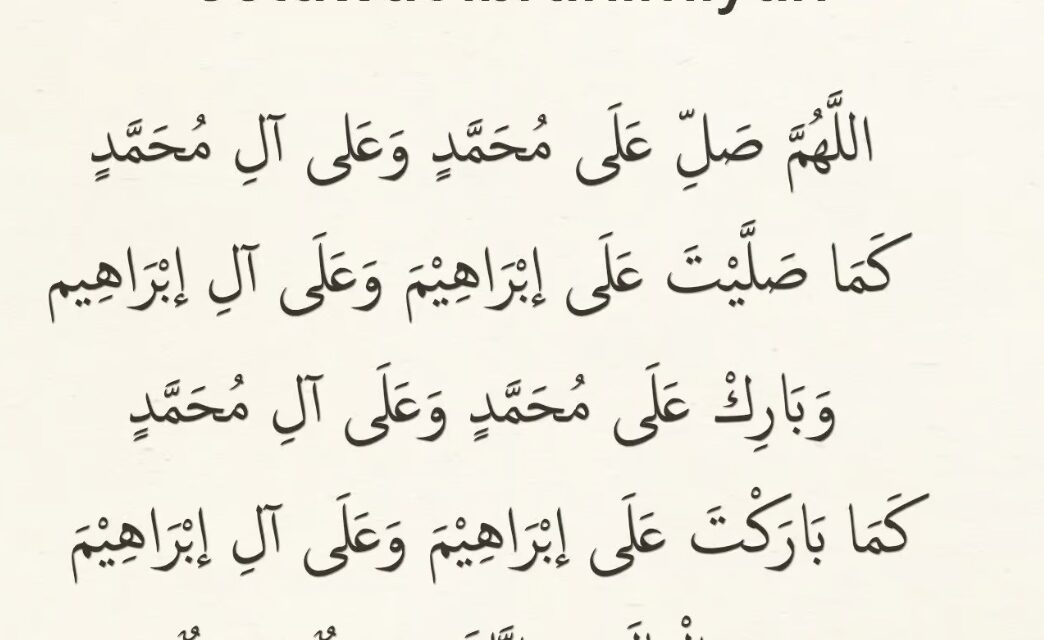 اللَّهُمَّ صَلِّ عَلَى مُحَمَّدٍ وَعَلى آلِ مُحَمَّدٍ
كَمَا صَلَّيْتَ عَلَى إبْرَاهِيْمَ وَعَلَى آلِ إبْرَاهِيم
وَبَارِكْ عَلَى مُحَمَّدٍ وَعَلَى آلِ مُحَمَّدٍ
كَمَا بَارَكْتَ عَلَى إبْرَاهِيْمَ وَعَلَى آلِ إبْرَاهِيْمَ